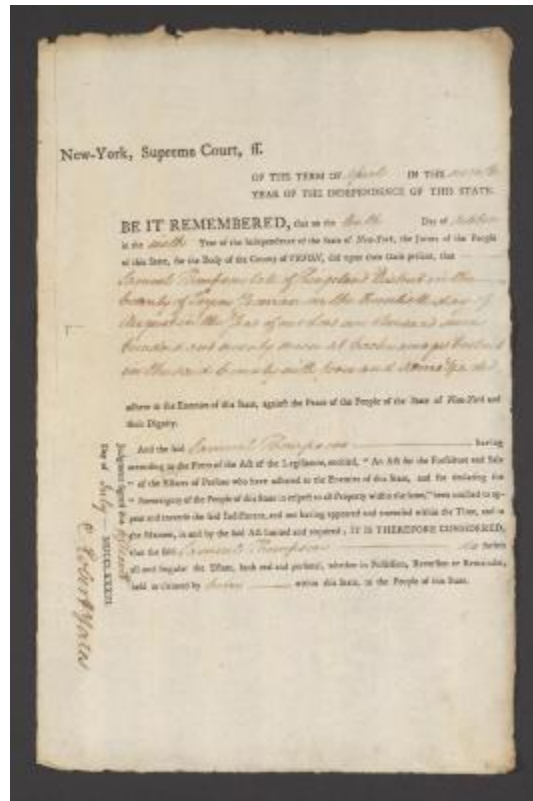 New-York, Supreme Court, ſſ.
OF THE TERM OF April IN THE
YEAR OF THE INDEPENDENCE OF THIS STATE.
BE IT REMEMBERED, that on the Day of October
in the sixth Year of the Independence of the State of New-York, the Jurors of the People
of this State, for the Body of the County of TRYON, did upon their Oath preſent, that
Samuel Thompson late of District in the
County of in the day of
August in the Year of our Lord one thousand seven
hundred and seventy seven at district
in the said County with force and Arms &c did
adhere to the Enemies of this State, againſt the Peace of the People of the State of New-York and
their Dignity.
And the ſaid Samuel Thompson having
according to the Form of the Act of the Legiſlature, entitled, " An Act for the Forfeiture and Sale
" of the Eſtates of Perſons who have adhered to the Enemies of this State, and for declaring the
" Sovereignty of the People of this State in reſpect to all Property within the ſame," been notified to ap-
pear and traverſe the ſaid Indictment, and not having appeared and traverſed within the Time, and in
the Manner, in and by the ſaid Act limited and required ; IT IS THEREFORE CONSIDERED,
that the ſaid Samuel Thompson do forfeit
all and ſingular the Eſtate, both real and perſonal, whether in Poſſeſſion, Reverſion or Remainder,
held or claimed by him within this State, to the People of this State.
Judgment ſigned this
Day of July MDCCLXXXIII.
Robert Yates